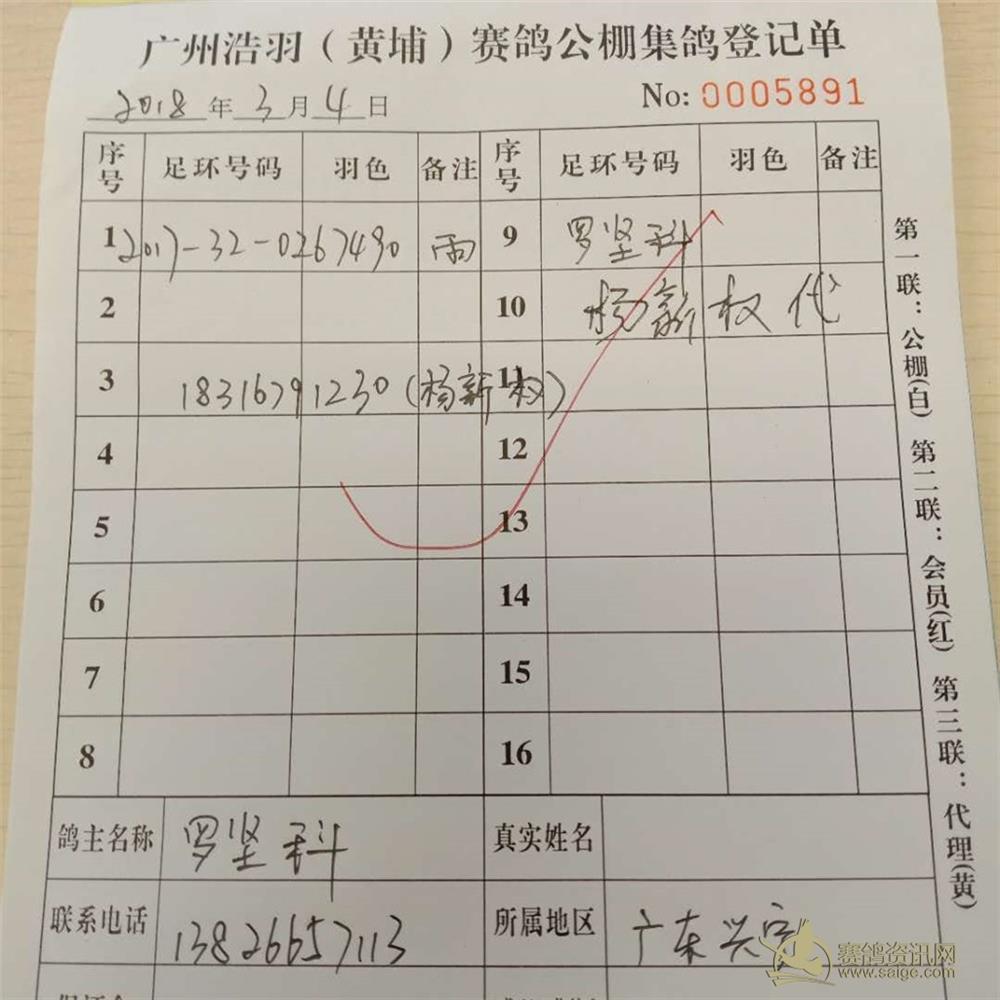 广州浩羽（黄埔）赛鸽公棚集鸽登记单
2018年3月4日 No: 0005891
序号 足环号码 羽色 备注 序号 足环号码 羽色 备注
1 2017-32-0267490 雨 9 罗坚科
2 10 杨新权代
3 18316791230(杨新权) 11
4 12
5 13
6 14
7 15
8 16
鸽主名称 罗坚科 真实姓名
联系电话 13826657113 所属地区 广东兴宁
第一联：公棚(白) 第二联：会员(红) 第三联：代理(黄)
赛鸽资讯网
www.saige.com